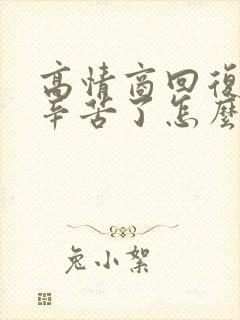 高情商回復
辛苦了怎麼
兔小絮